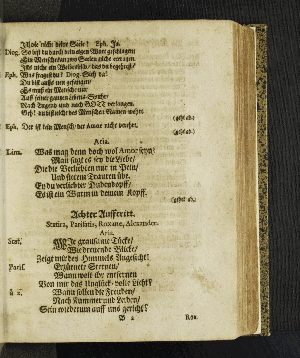 Ist ole nicht deine Seele? Eph. Ja.
Diog. So bist du durch dein eigen Wort geschlagen;
Ein Mensche kan zwo Seelen nicht ertragen.
Ists nicht ein Weibesbild/ das du begehrest/
Eph. Was fragest du? Diog. Sieh da!
Du bist auffs neu gefangen/
Es muß ein Mensche nur
Auff seiner gantzen Lebens-Spuhr/
Nach Tugend und nach GOTT verlangen.
Geh! du bist nicht des Menschen Namen wehrt.
(geht ab.)
Eph. Der ist kein Mensch/ der Amor nicht verehrt.
(geht ab.)
Aria.
Lim. Was mag denn doch wol Amor seyn/
Man sagt es sey die Liebe/
Die die Verliebten nur in Pein/
Und stetem Trauren übt.
Ey du verliebter Dudenkopff/
Es ist ein Wurm in deinem Kopff.
(gehet ab.)
Achter Aufftritt.
Statira, Parisatis, Roxane, Alexander.
Aria.
Stat. Die grausame Tücke/
Wie dreuende Blicke/
Zeigt mir des Himmels Angesicht!
Paris. Erzürnete Sternen/
Wann wolt ihr entfernen
Von mir das Unglück-volle Licht?
à 2. Wann sollen die Freuden/
Nach Kummer und Leiden/
Sein wiederum auff uns gericht?
B 2 Rox.